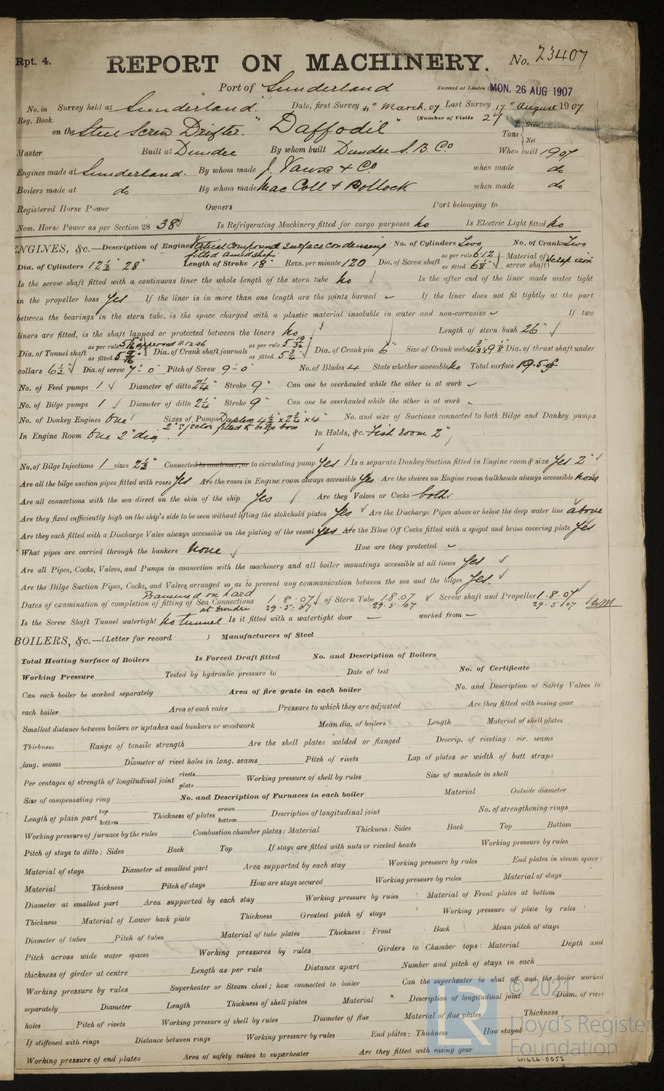 Rpt. 4.
REPORT ON MACHINERY. No. 23407
Port of Sunderland Received at London MON. 26 AUG 1907
No. in Survey held at Sunderland Date, first Survey 4th March, 07 Last Survey 17th August 1907
Reg. Book. (Number of Visits 27)
on the Steel Screw Drifter "Daffodil" Tons
Net
Master Built at Dundee By whom built Dundee S. B. Co When built 1907
Engines made at Sunderland By whom made J. Vaux & Co when made do
Boilers made at do By whom made MacColl & Pollock when made do
Registered Horse Power Owners Port belonging to
Nom. Horse Power as per Section 28 38 Is Refrigerating Machinery fitted for cargo purposes No Is Electric Light fitted No
ENGINES, &c.—Description of Engines Vertical Compound Surface Condensing No. of Cylinders Two No. of Cranks Two
fitted amidships
Dia. of Cylinders 12½" 28" Length of Stroke 18" Revs. per minute 120 Dia. of Screw shaft as per rule as fitted Material of screw shaft Scrap iron
Is the screw shaft fitted with a continuous liner the whole length of the stern tube No Is the after end of the liner made water tight
in the propeller boss Yes If the liner is in more than one length are the joints burned If the liner does not fit tightly at the part
between the bearings in the stern tube, is the space charged with a plastic material insoluble in water and non-corrosive If two
liners are fitted, is the shaft lapped or protected between the liners No Length of stern bush 26"
Dia. of Tunnel shaft as per rule as fitted Dia. of Crank shaft journals as per rule as fitted 5¾ Dia. of Crank pin 6" Size of Crank webs Dia. of thrust shaft under
collars 6½" Dia. of screw 7'-0" Pitch of Screw 9'-0" No. of Blades 4 State whether moveable No Total surface 19.5 sqft
No. of Feed pumps 1 Diameter of ditto 2¼" Stroke 9" Can one be overhauled while the other is at work
No. of Bilge pumps 1 Diameter of ditto 2¼" Stroke 9" Can one be overhauled while the other is at work
No. of Donkey Engines One Sizes of Pumps Duplex 4½" x 2¾" x 4" No. and size of Suctions connected to both Bilge and Donkey pumps
2" ejector fitted to bilge
In Engine Room One 2" dia. In Holds, &c. Fish room 2"
No. of Bilge Injections 1 sizes Connected to condenser, or to circulating pump Yes Is a separate Donkey Suction fitted in Engine room & size Yes 2"
Are all the bilge suction pipes fitted with roses Yes Are the roses in Engine room always accessible Yes Are the sluices on Engine room bulkheads always accessible None
Are all connections with the sea direct on the skin of the ship Yes Are they Valves or Cocks both
Are they fixed sufficiently high on the ship's side to be seen without lifting the stokehold plates Yes Are the Discharge Pipes above or below the deep water line above
Are they each fitted with a Discharge Valve always accessible on the plating of the vessel Yes Are the Blow Off Cocks fitted with a spigot and brass covering plate Yes
What pipes are carried through the bunkers None How are they protected
Are all Pipes, Cocks, Valves, and Pumps in connection with the machinery and all boiler mountings accessible at all times Yes
Are the Bilge Suction Pipes, Cocks, and Valves arranged so as to prevent any communication between the sea and the bilges Yes
Dates of examination of completion of fitting of Sea Connections 1.8.07 of Stern Tube 1.8.07 Screw shaft and Propeller 1.8.07
at Dundee 29.5.07 29.5.07 29.5.07
Is the Screw Shaft Tunnel watertight No tunnel Is it fitted with a watertight door worked from
BOILERS, &c.—(Letter for record ) Manufacturers of Steel
Total Heating Surface of Boilers Is Forced Draft fitted No. and Description of Boilers
Working Pressure Tested by hydraulic pressure to Date of test No. of Certificate
Can each boiler be worked separately Area of fire grate in each boiler No. and Description of Safety Valves to
each boiler Area of each valve Pressure to which they are adjusted Are they fitted with easing gear
Smallest distance between boilers or uptakes and bunkers or woodwork Mean dia. of boilers Length Material of shell plates
Thickness Range of tensile strength Are the shell plates welded or flanged Descrip. of riveting: cir. seams
long. seams Diameter of rivet holes in long. seams Pitch of rivets Lap of plates or width of butt straps
Per centages of strength of longitudinal joint rivets plate Working pressure of shell by rules Size of manhole in shell
Size of compensating ring No. and Description of Furnaces in each boiler Material Outside diameter
Length of plain part top bottom Thickness of plates crown bottom Description of longitudinal joint No. of strengthening rings
Working pressure of furnace by the rules Combustion chamber plates: Material Thickness: Sides Back Top Bottom
Pitch of stays to ditto: Sides Back Top If stays are fitted with nuts or riveted heads Working pressure by rules
Material of stays Diameter at smallest part Area supported by each stay Working pressure by rules End plates in steam space:
Material Thickness Pitch of stays How are stays secured Working pressure by rules Material of stays
Diameter at smallest part Area supported by each stay Working pressure by rules Material of Front plates at bottom
Thickness Material of Lower back plate Thickness Greatest pitch of stays Working pressure of plate by rules
Diameter of tubes Pitch of tubes Material of tube plates Thickness: Front Back Mean pitch of stays
Pitch across wide water spaces Working pressures by rules Girders to Chamber tops: Material Depth and
thickness of girder at centre Length as per rule Distance apart Number and pitch of stays in each
Working pressure by rules Superheater or Steam chest; how connected to boiler Can the superheater be shut off and the boiler worked
separately Diameter Length Thickness of shell plates Material Description of longitudinal joint Diam. of rivet
holes Pitch of rivets Working pressure of shell by rules Diameter of flue Material of flue plates Thickness
If stiffened with rings Distance between rings Working pressure by rules End plates: Thickness How stayed
Working pressure of end plates Area of safety valves to superheater Are they fitted with easing gear
© 2021
Lloyd's Register
Foundation
W1626-0053